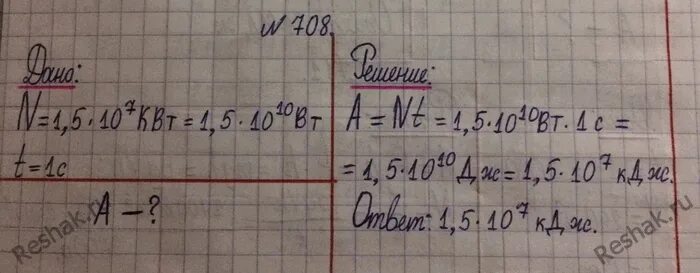 N 708.
Дано:
N = 1,5 · 10⁷ КВт = 1,5 · 10¹⁰ Вт
t = 1с
A – ?
Решение:
A = Nt = 1,5 · 10¹⁰ Вт · 1 с =
= 1,5 · 10¹⁰ Дж = 1,5 · 10⁷ кДж.
Ответ: 1,5 · 10⁷ кДж.
Reshak.ru
Reshak.ru